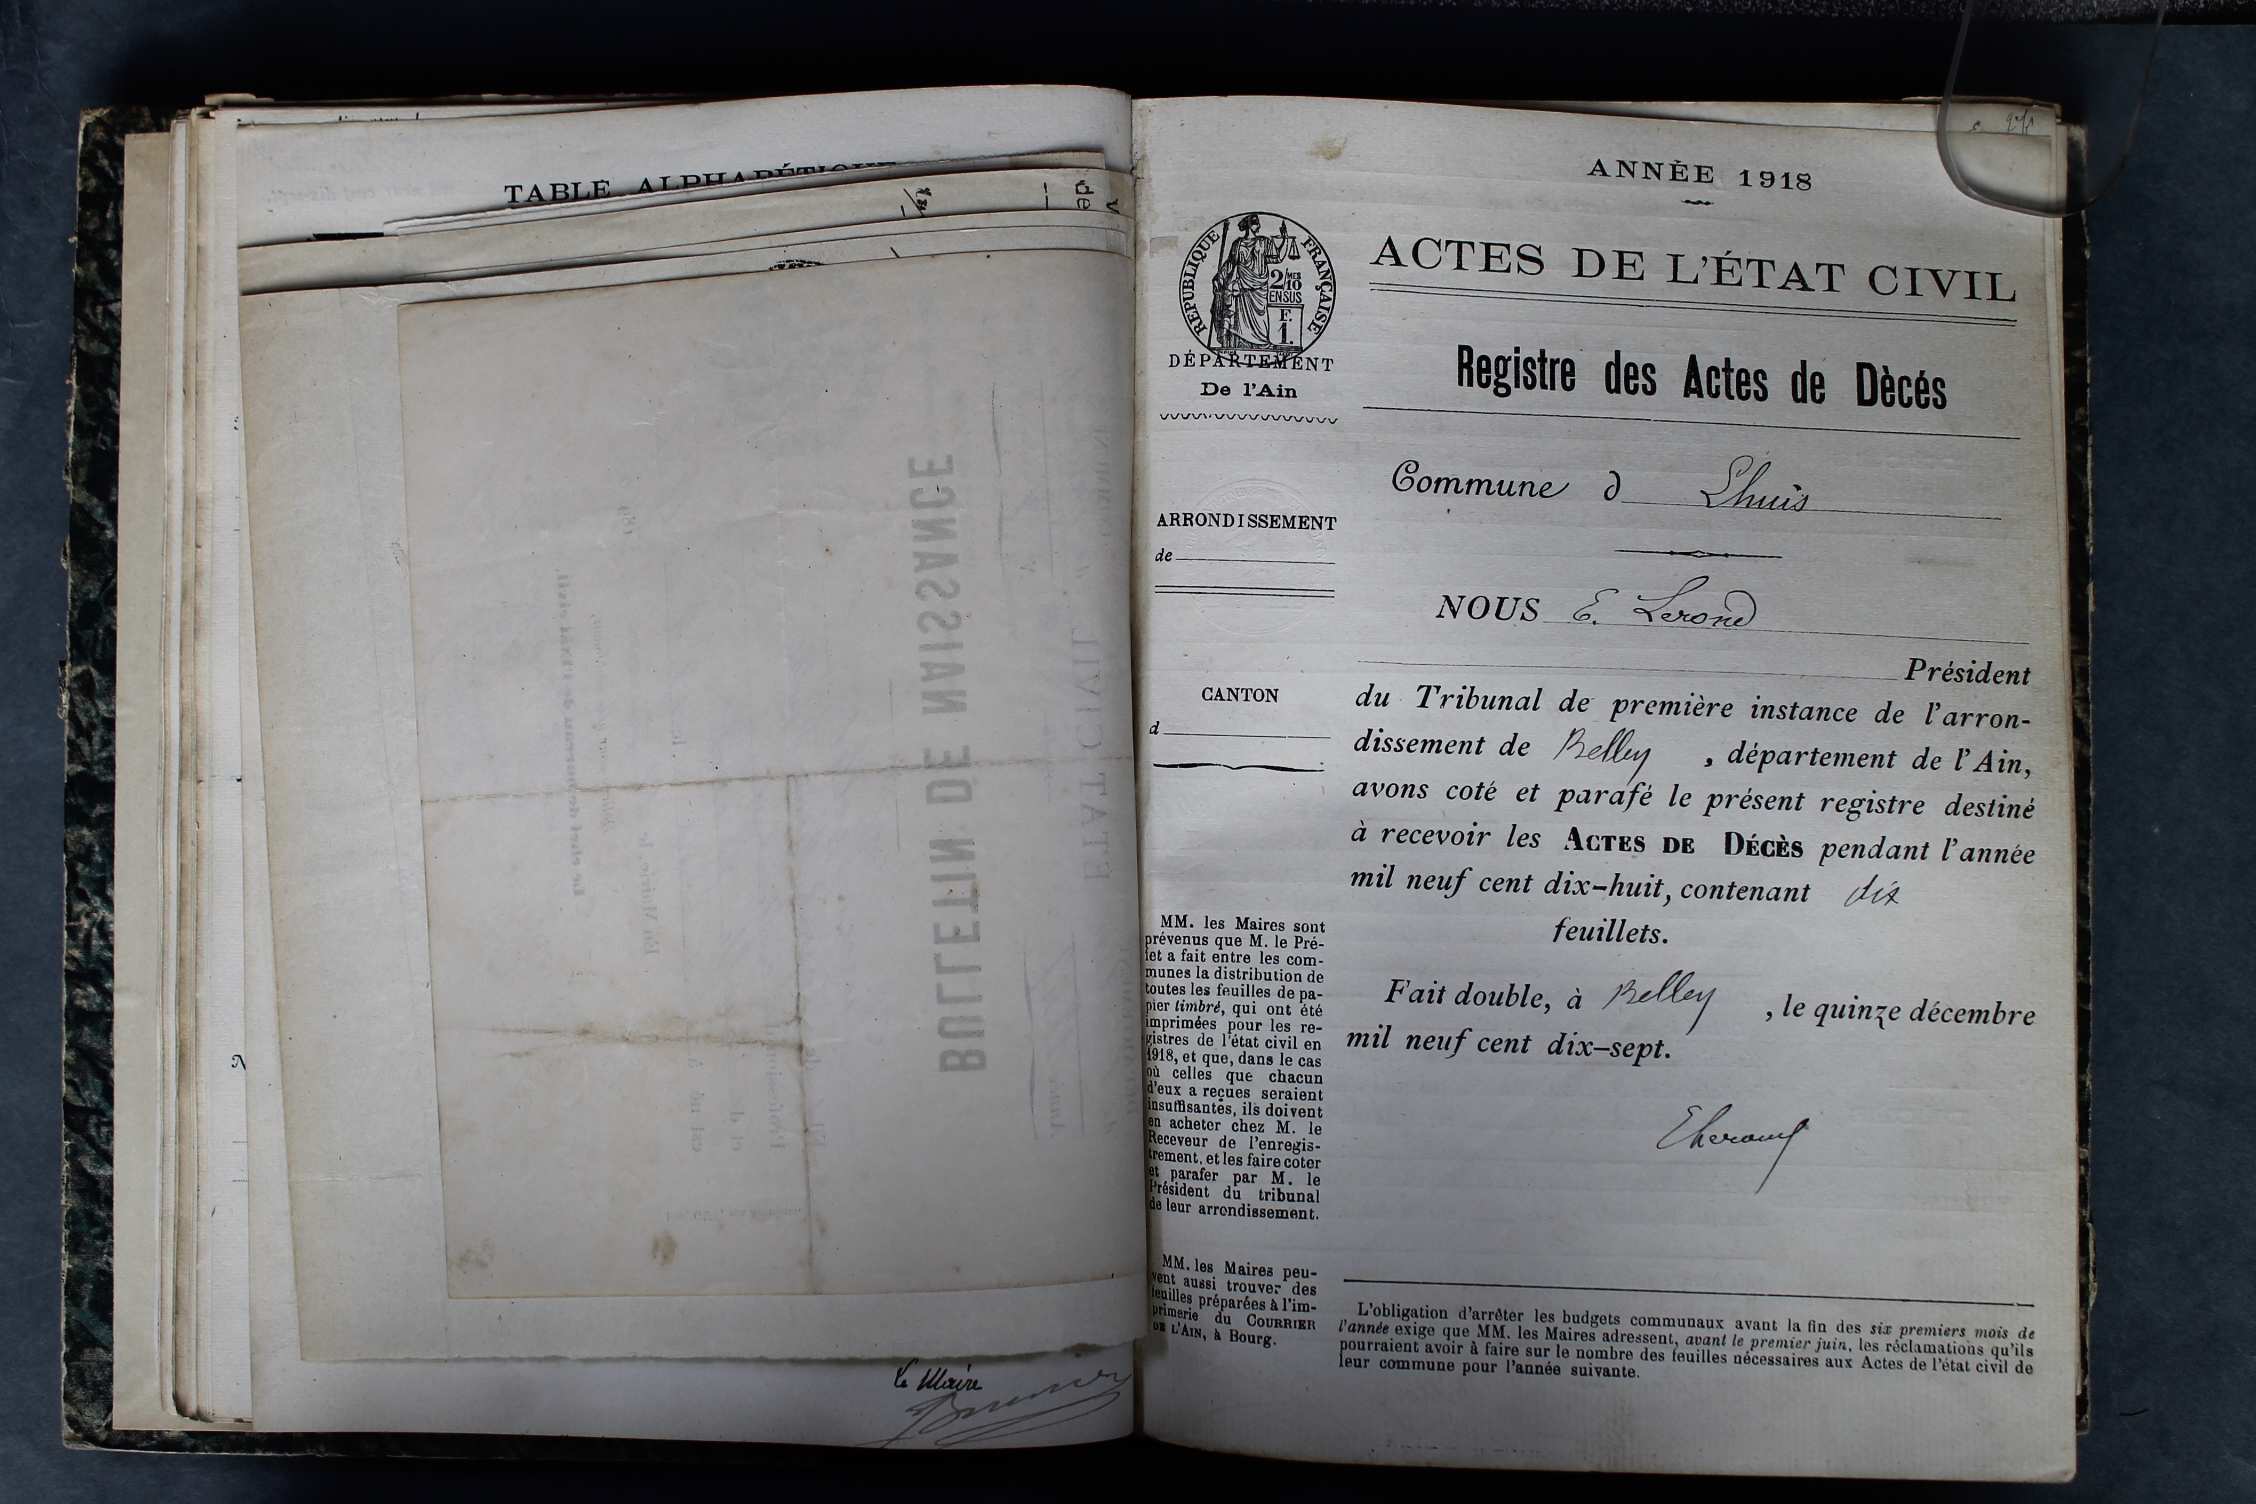 TABLE ALPHABÉTIQUE
de
BULLETIN DE NAISSANCE
ETAT CIVIL
Le Maire
ANNÉE 1918
RÉPUBLIQUE FRANÇAISE
2/10
MES
EN SUS
F.
1.
DÉPARTEMENT
De l'Ain
ARRONDISSEMENT
de
CANTON
d
MM. les Maires sont
prévenus que M. le Pré-
fet a fait entre les com-
munes la distribution de
toutes les feuilles de pa-
pier timbré, qui ont été
imprimées pour les re-
gistres de l'état civil en
1918, et que, dans le cas
où celles que chacun
d'eux a reçues seraient
insuffisantes, ils doivent
en acheter chez M. le
Receveur de l'enregis-
trement, et les faire coter
et parafer par M. le
Président du tribunal
de leur arrondissement.
MM. les Maires peu-
vent aussi trouver des
feuilles préparées à l'im-
primerie du COURRIER
DE L'AIN, à Bourg.
ACTES DE L'ÉTAT CIVIL
Registre des Actes de Dècés
Commune d Lhuis
NOUS E. Lerond
Président
du Tribunal de première instance de l'arron-
dissement de Belley , département de l'Ain,
avons coté et parafé le présent registre destiné
à recevoir les ACTES DE DÉCÈS pendant l'année
mil neuf cent dix-huit, contenant dix
feuillets.
Fait double, à Belley , le quinze décembre
mil neuf cent dix-sept.
L'obligation d'arrêter les budgets communaux avant la fin des six premiers mois de
l'année exige que MM. les Maires adressent, avant le premier juin, les réclamations qu'ils
pourraient avoir à faire sur le nombre des feuilles nécessaires aux Actes de l'état civil de
leur commune pour l'année suivante.